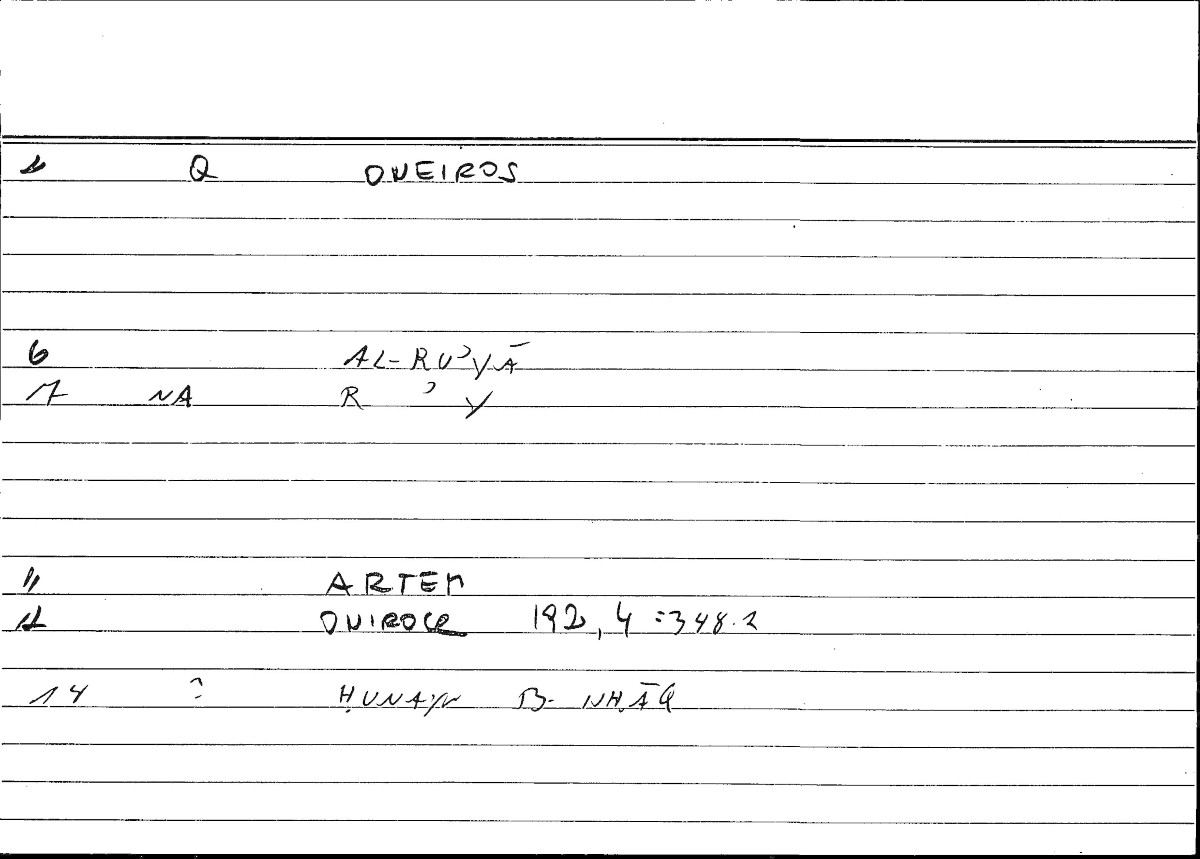 1 Q ONEIROS
6 AL-RUʾYĀ
7 NA R ʾ Y
11 ARTEM
12 ONIROCR 192, 4 = 348.2
14 ? ḤUNAYN B. ISḤĀQ